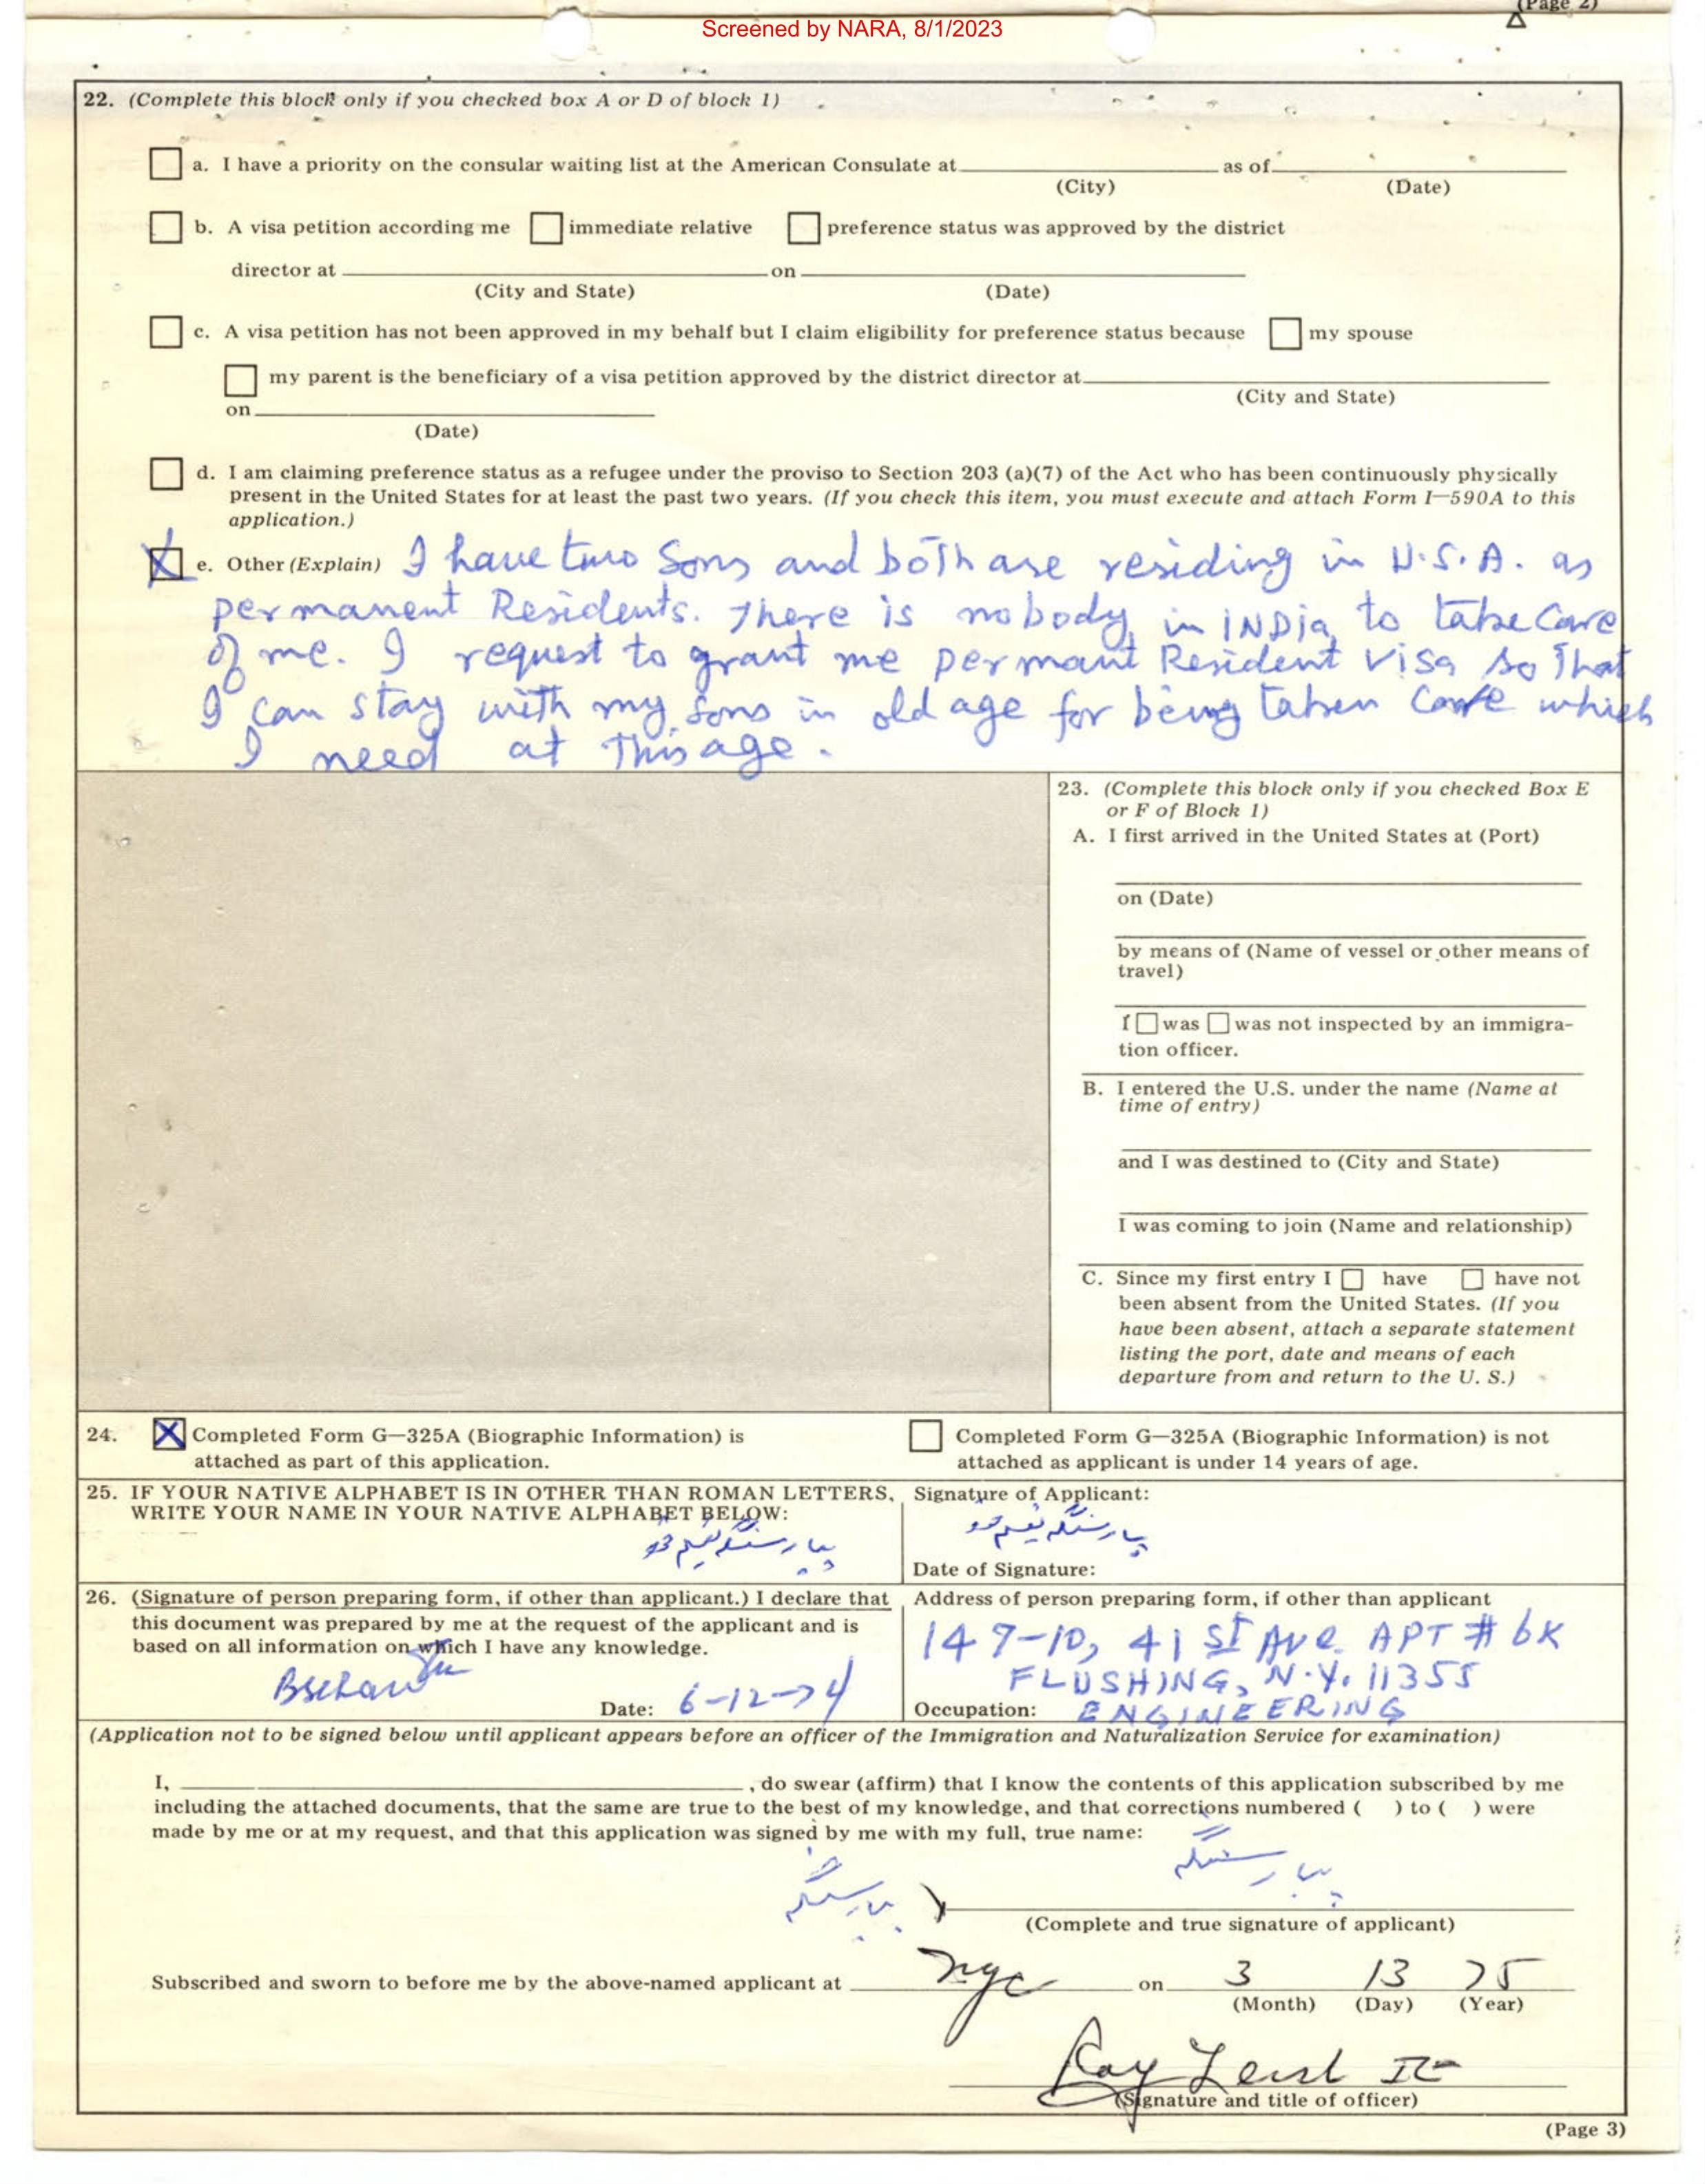 (Page 2)
Screened by NARA, 8/1/2023
22. (Complete this block only if you checked box A or D of block 1)
a. I have a priority on the consular waiting list at the American Consulate at as of
(City) (Date)
b. A visa petition according me immediate relative preference status was approved by the district
director at on
(City and State) (Date)
c. A visa petition has not been approved in my behalf but I claim eligibility for preference status because my spouse
my parent is the beneficiary of a visa petition approved by the district director at
(City and State)
on
(Date)
d. I am claiming preference status as a refugee under the proviso to Section 203 (a)(7) of the Act who has been continuously physically
present in the United States for at least the past two years. (If you check this item, you must execute and attach Form I—590A to this
application.)
X e. Other (Explain) I have two Sons and both are residing in U.S.A. as
permanent Residents. There is nobody in INDIA to take care
of me. I request to grant me permant Resident Visa so that
I can stay with my sons in old age for being taken care which
I need at This age.
23. (Complete this block only if you checked Box E
or F of Block 1)
A. I first arrived in the United States at (Port)
on (Date)
by means of (Name of vessel or other means of
travel)
I was was not inspected by an immigra-
tion officer.
B. I entered the U.S. under the name (Name at
time of entry)
and I was destined to (City and State)
I was coming to join (Name and relationship)
C. Since my first entry I have have not
been absent from the United States. (If you
have been absent, attach a separate statement
listing the port, date and means of each
departure from and return to the U. S.)
24. X Completed Form G—325A (Biographic Information) is
attached as part of this application.
Completed Form G—325A (Biographic Information) is not
attached as applicant is under 14 years of age.
25. IF YOUR NATIVE ALPHABET IS IN OTHER THAN ROMAN LETTERS,
WRITE YOUR NAME IN YOUR NATIVE ALPHABET BELOW:
پیارسنگھ
Signature of Applicant:
پیارسنگھ
Date of Signature:
26. (Signature of person preparing form, if other than applicant.) I declare that
this document was prepared by me at the request of the applicant and is
based on all information on which I have any knowledge.
Date: 6-12-74
Address of person preparing form, if other than applicant
147-10, 41 ST Ave. APT # 6K
FLUSHING, N.Y. 11355
Occupation: ENGINEERING
(Application not to be signed below until applicant appears before an officer of the Immigration and Naturalization Service for examination)
I, , do swear (affirm) that I know the contents of this application subscribed by me
including the attached documents, that the same are true to the best of my knowledge, and that corrections numbered ( ) to ( ) were
made by me or at my request, and that this application was signed by me with my full, true name:
پیارسنگھ
پیارسنگھ
(Complete and true signature of applicant)
Subscribed and sworn to before me by the above-named applicant at nyc on 3 13 75
(Month) (Day) (Year)
(Signature and title of officer)
(Page 3)